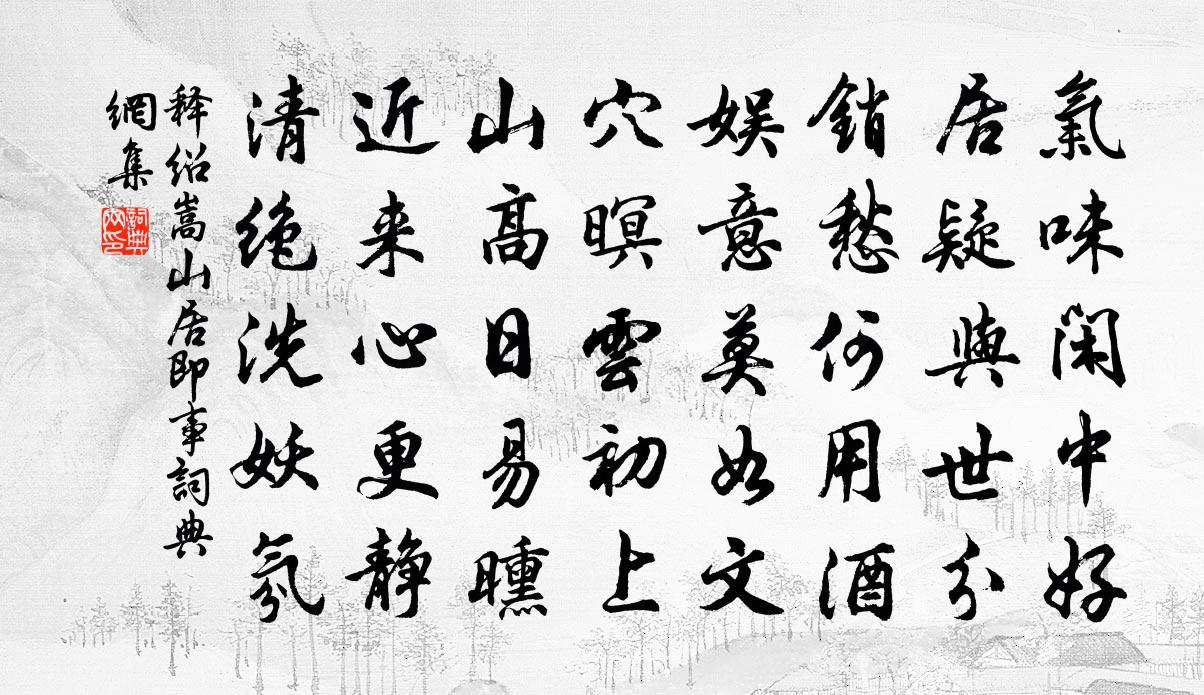 氣味閑中好
居疑與世分
銷愁何用酒
娱意莫如文
穴暝雲初上
山高日易曛
近来心更静
清绝洗妖氛
释绍嵩山居即事詞典
網集
詞典
网印